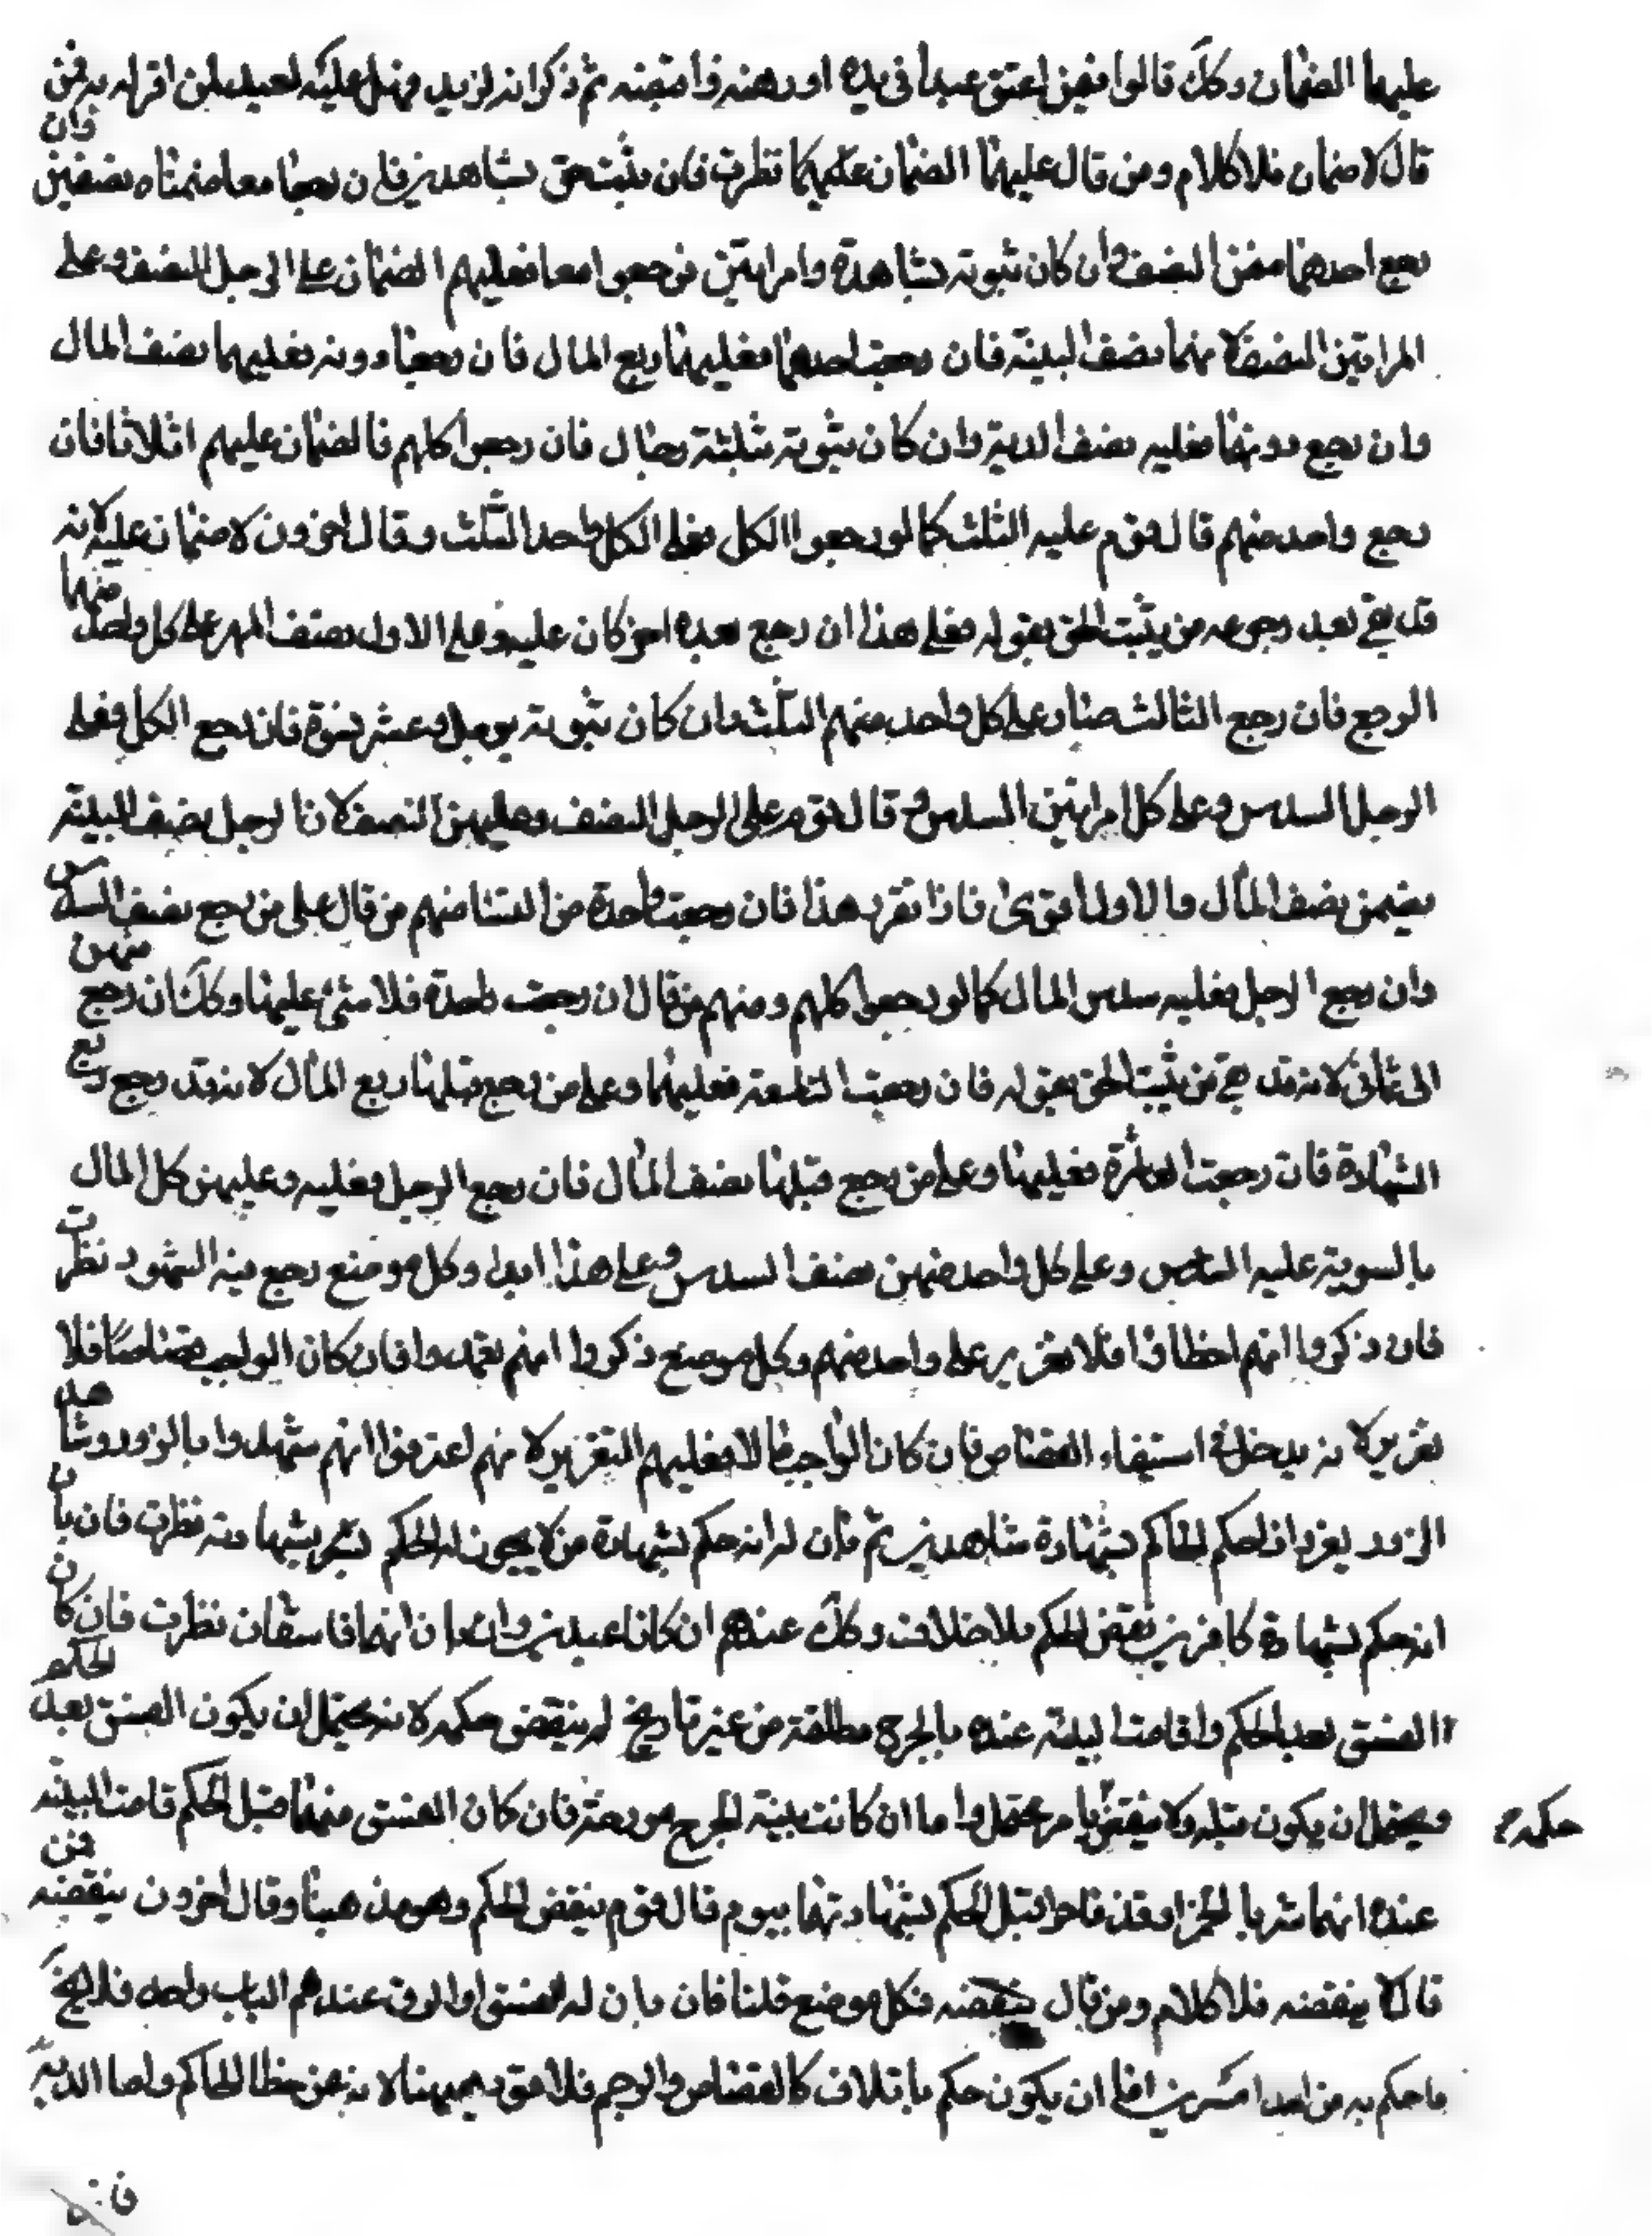 عليهما الضمان وكك قالوا فيمن اعتق عبدا في يده او رهنه واقبضه ثم ذكر انه لزيد فهل عليه لعبد لمن اقر له به فمن
قال لا ضمان فلا كلام ومن قال عليهما الضمان عليهما نظرت فان ثبت حق بشاهدين فان رجعا معا ضمناه نصفين فان
رجع احدهما ضمن النصف وان كان ثبوته بشاهد وامراتين فرجعوا معا فعليهم الضمان على الرجل النصف وعلى
المراتين النصف لانهما نصف البينة فان رجعت احدهما فعليها ربع المال فان رجعتا دونه فعليهما نصف المال
وان رجع دونهما فعليه نصف الدية وان كان ثبوته بثلثة رجال فان رجعوا كلهم فالضمان عليهم اثلاثا فان
رجع واحد منهم قال قوم عليه الثلث كما لو رجعوا الكل فعلى الكل واحد الثلث وقال اخرون لا ضمان عليه لانه
قد بقي بعد رجوعه من يثبت الحق بقوله فعلى هذا ان رجع بعده اخر كان عليه وعلى الاول نصف المهر على كل واحد منهما
الربع فان رجع الثالث صار على كل واحد منهم الثلث وان كان ثبوته برجل وعشر نسوة فان رجع الكل فعلى
الرجل السدس وعلى كل امراتين السدس وقال قوم على الرجل النصف وعليهن النصف لان الرجل نصف البينة
يضمن نصف المال والاول اقوى فاذا تقرر هذا فان رجعت واحدة من النساء منهم من قال على من رجع نصف السدس
وان رجع الرجل فعليه سدس المال كما لو رجعوا كلهم ومنهم من قال ان رجعت واحدة فلا شيء عليها وكك ان رجع منهن
الى ثماني لانه قد بقي من يثبت الحق بقوله فان رجعت التاسعة فعليها وعلى من رجع قبلها ربع المال لانه قد رجع ربع
الشهادة فان رجعت العاشرة فعليها وعلى من رجع قبلها نصف المال فان رجع الرجل فعليه وعليهن كل المال
بالسوية عليه السدس وعلى كل واحد منهن نصف السدس وعلى هذا ابدا وكل موضع رجع فيه الشهود نظرت
فان ذكروا انهم اخطاوا فلا تعزير على واحد منهم وكل موضع ذكروا انهم تعمدوا فان كان الواجب قصاصا فلا
تعزير لانه يدخل في استيفاء القصاص فان كان الواجب مالا فعليهم التعزير لانهم اعترفوا انهم شهدوا بالزور وشاهد
الزور يعزر اذا حكم الحاكم بشهادة شاهدين ثم بان له انه حكم بشهادة من لا يجوز له الحكم بشهادته نظرت فان بان
انه حكم بشهادة كافرين نقض الحكم بلا خلاف وكك عندهم ان كانا عبدين وان بان انهما فاسقان نظرت فان كان
الفسق بعد الحكم واقامت البينة عنده بالجرح مطلقة من غير تاريخ لم ينقض حكمه لانه يحتمل ان يكون الفسق بعد الحكم
ويحتمل ان يكون قبله ولا ينقض بامر محتمل واما ان كانت بينة الجرح مورخة فان كان الفسق منهما قبل الحكم قامت البينة حكمه
عنده انهما شربا الخمر او قذفا حرا قبل الحكم بشهادتهما بيوم قال قوم ينقض الحكم وهو مذهبنا وقال اخرون لا ينقضه فمن
قال لا ينقضه فلا كلام ومن قال ينقضه فكل موضع قلنا فان بان له الفسق او الرق عندهم الباب واحد فلا يخ
ما حكم به من احد امرين اما ان يكون حكم باتلاف كالقصاص والرجم فلا قود هيهنا لانه عن خطا الحاكم واما الدية
فانه